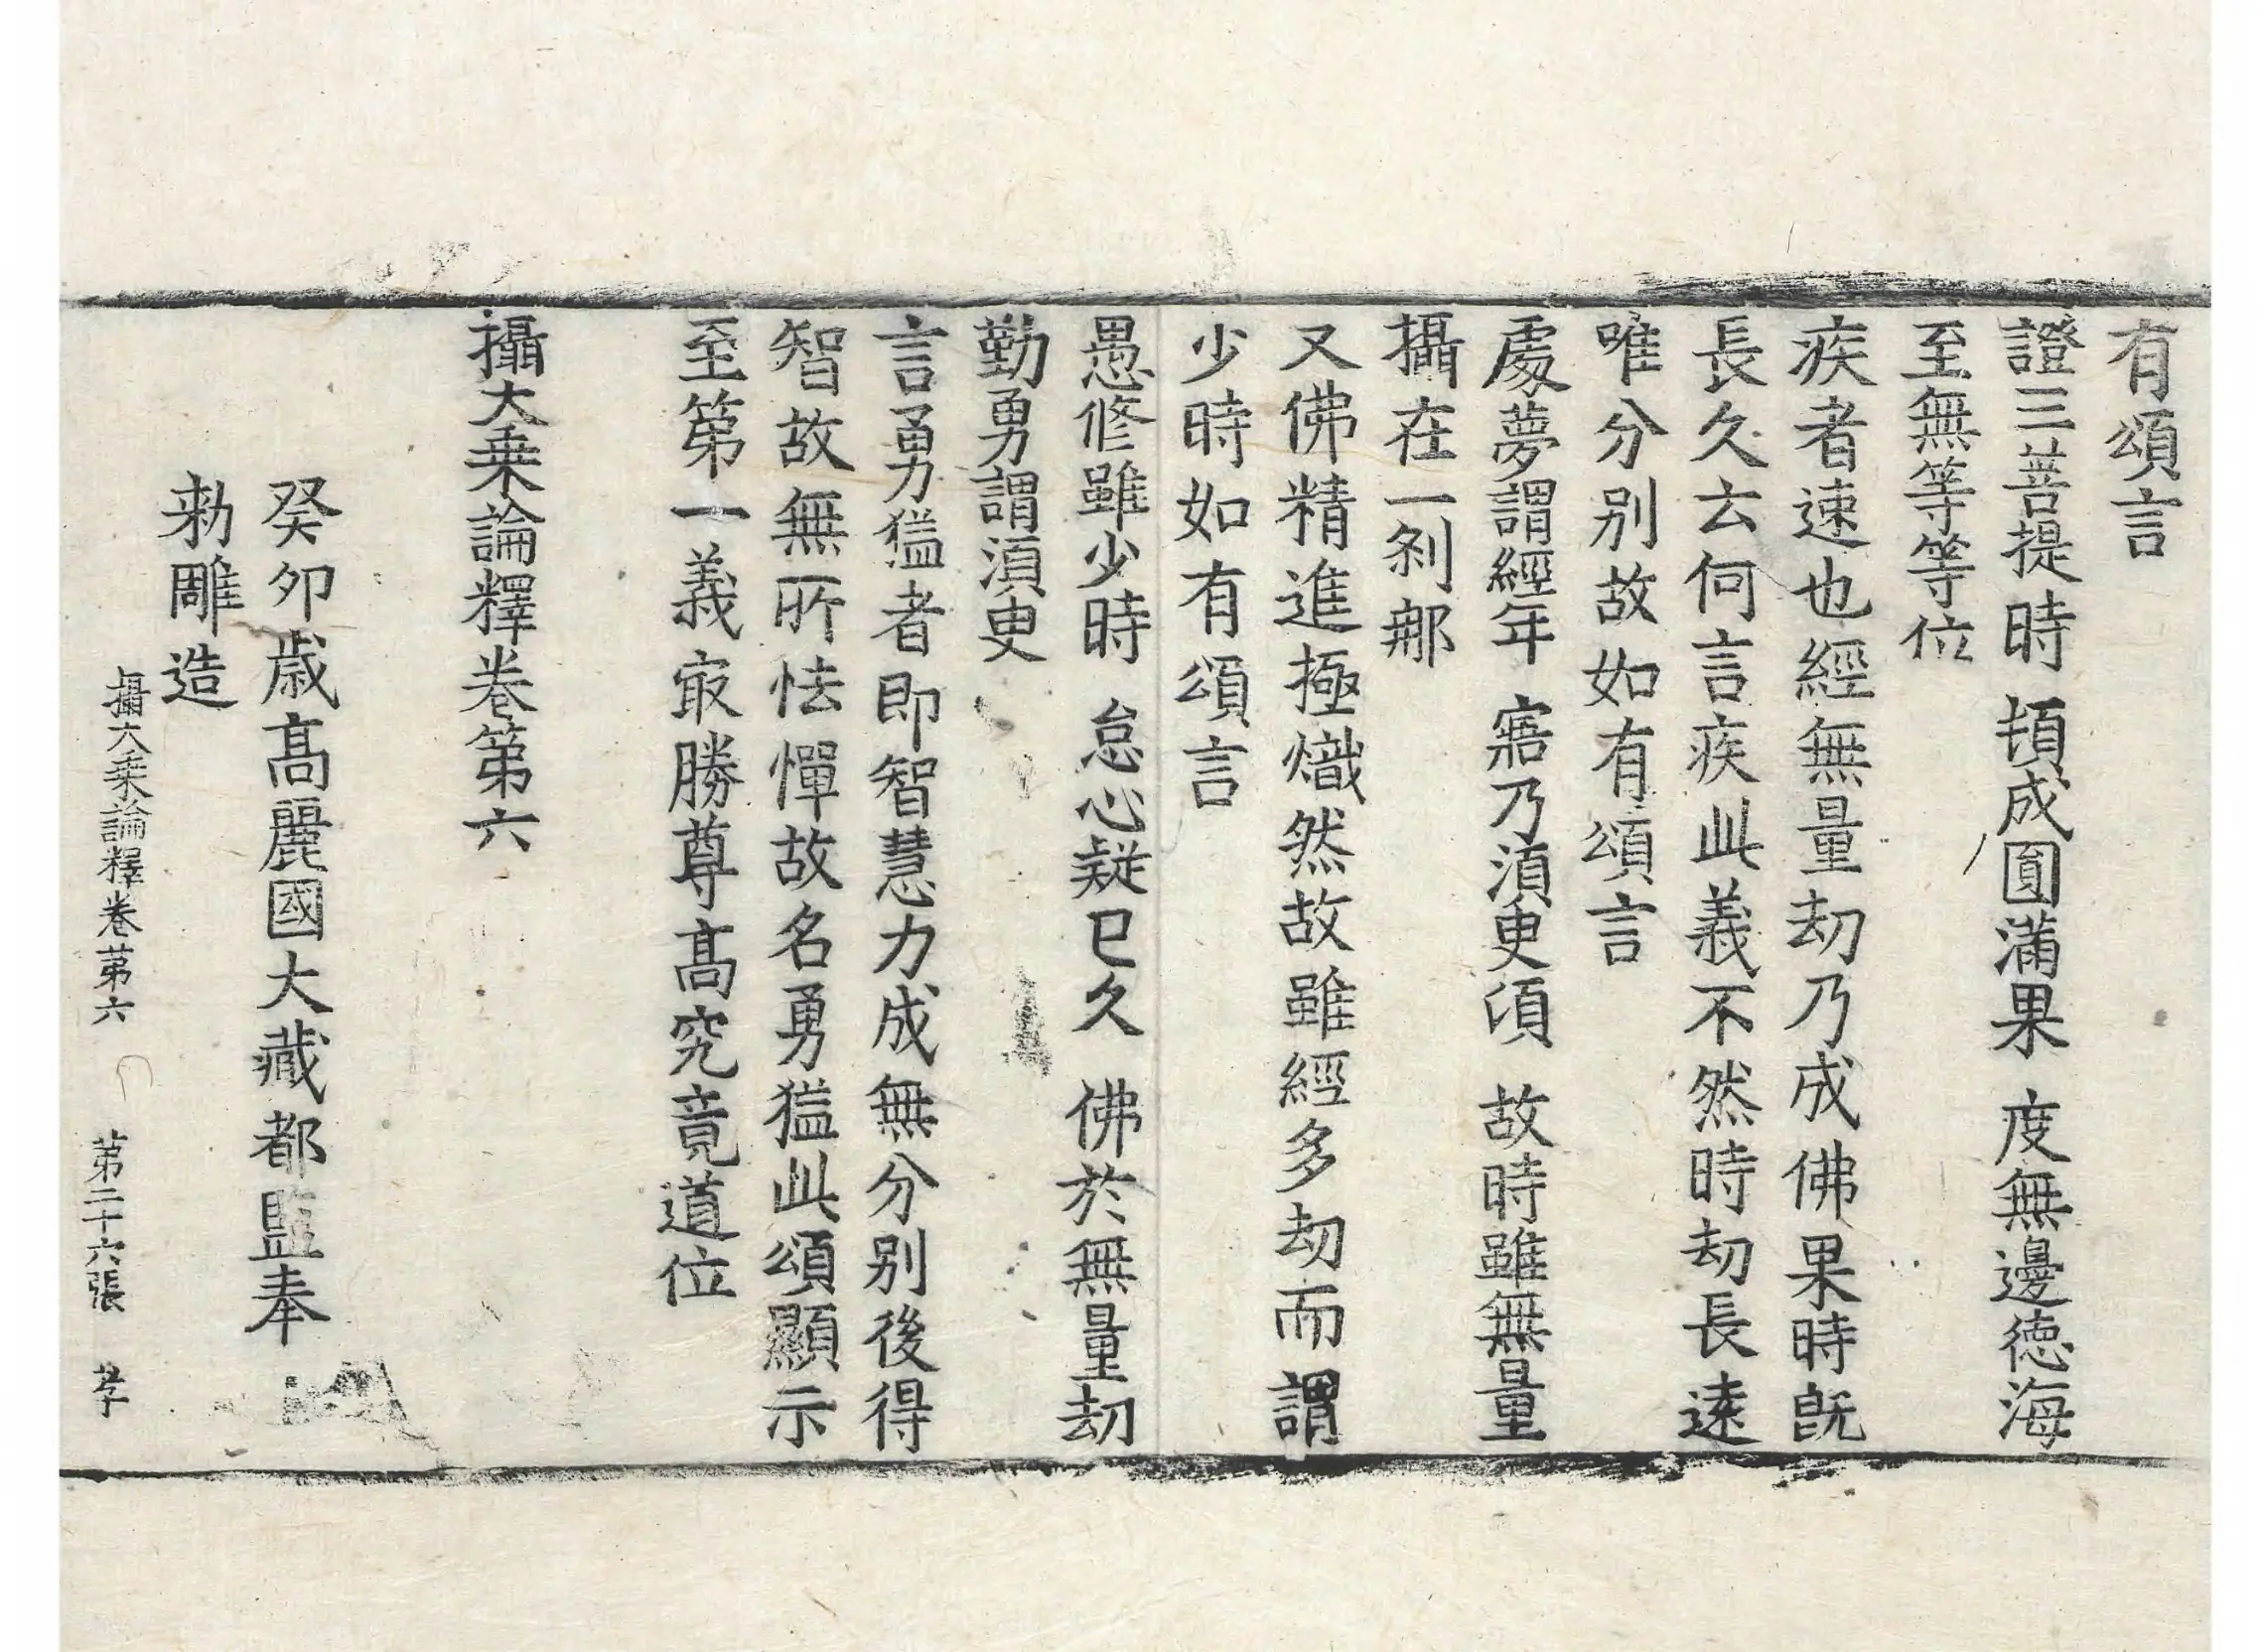 有頌言
證三菩提時　頓成圓滿果　度無邊德海
至無等等位
疾者速也經無量劫乃成佛果時旣
長久云何言疾此義不然時劫長遠
唯分別故如有頌言
處夢謂經年　寤乃湏臾項　故時雖無量
攝在一刹那
又佛精進極熾然故雖經多劫而謂
少時如有頌言
愚修雖少時　怠心疑已久　佛於無量劫
勤勇謂湏臾
言勇猛者即智慧力成無分別後得
智故無所怯憚故名勇猛此頌顯示
至第一義㝡勝尊髙究竟道位
攝大乗論釋卷第六
癸卯歲髙麗國大藏都監奉
勑雕造
攝大乗論釋卷第六　第二十六張　孝